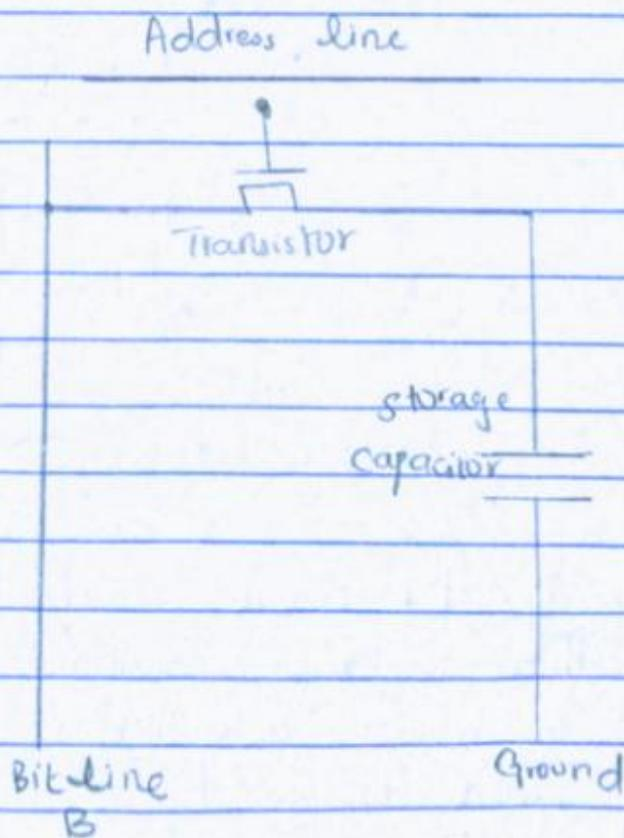 Address line
Transistor
storage
capacitor
Bit line
B
Ground